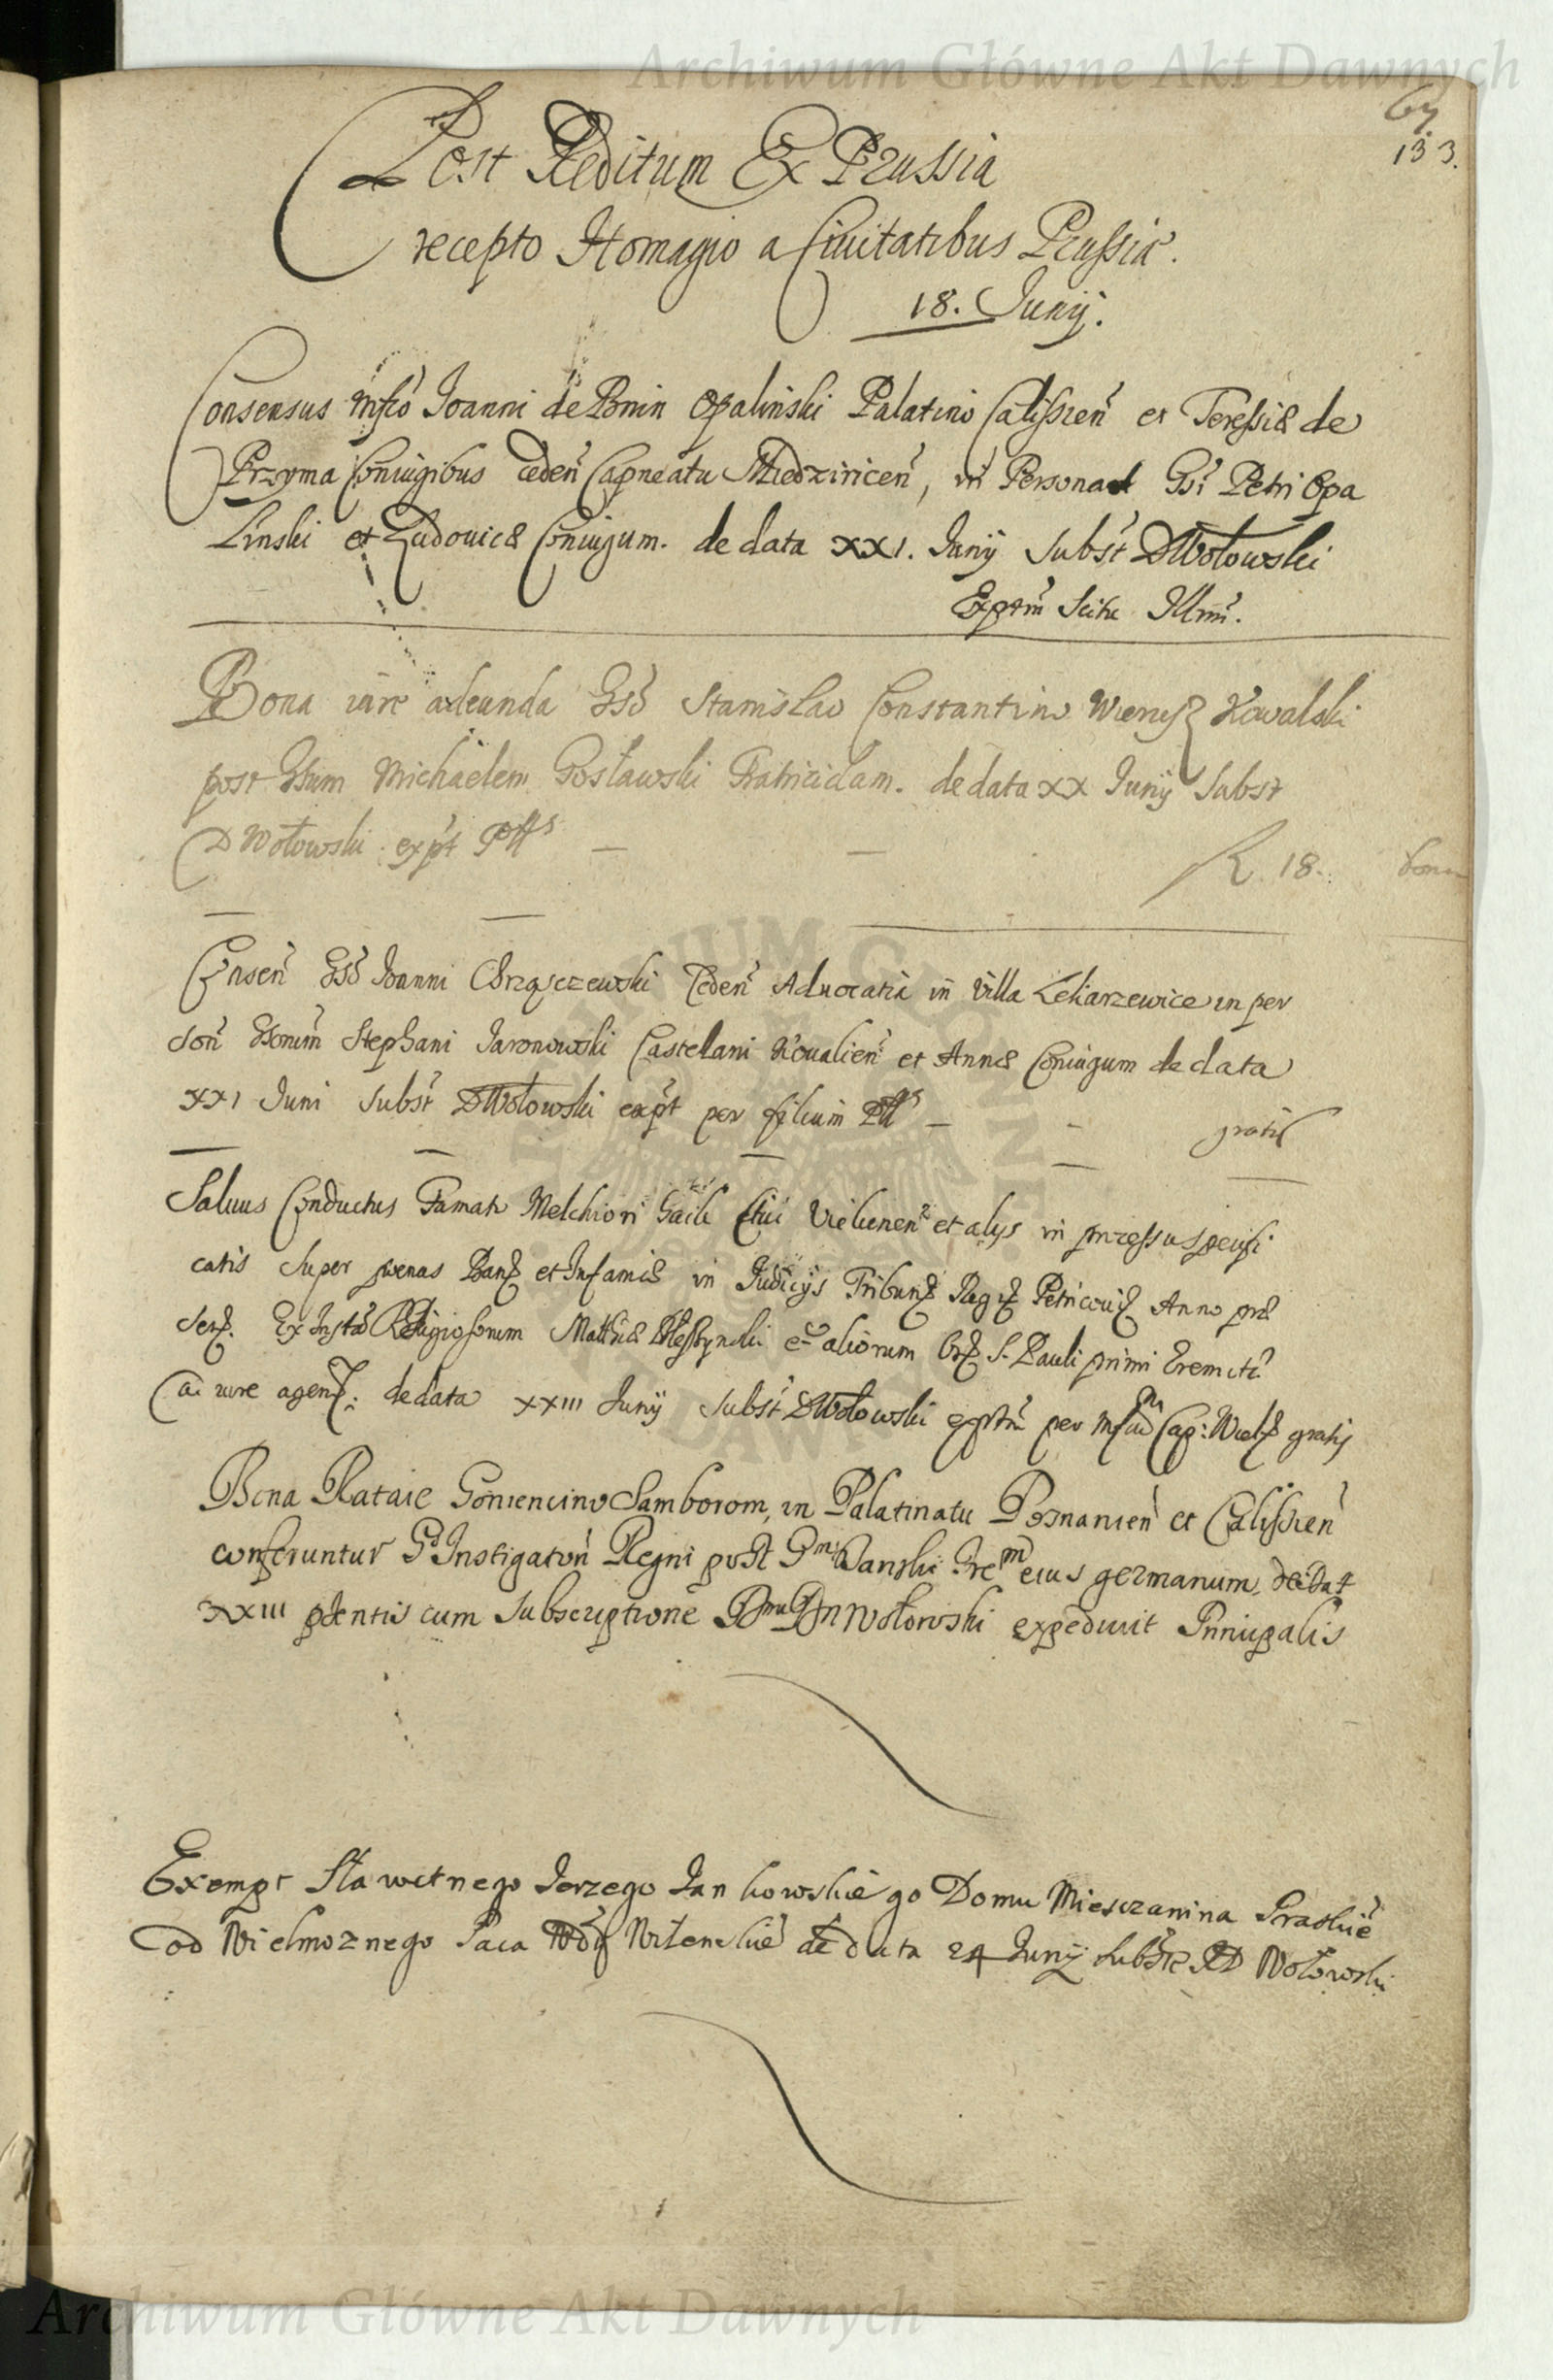 Archiwum Główne Akt Dawnych
67
133.
Post Reditum Ex Prussia
recepto Homagio a Ciuitatibus Prussiæ.
18. Junij.
Consensus Mfco Joanni de Bnin Opalinski Palatino Calissien et Teressiæ de
Przyma Coniugibus ceden Capneatu Miedziricen, in Personas Gsi Petri Opa
linski et Ludouicæ Coniugum. de data XXI. Junij Subst D Wołowski
Exptm Scitu Illmi.
Bona iure adeunda Gso Stanislao Constantino Wierusz Kowalski
post Gsum Michaelem Gosławski Fratricidam. de data XX Junij Subst
D Wołowski. expt
R. 18.
Consen Gso Joanni Chrząsczewski Ceden Aduocatia in Villa Lekarzewice in per
son Gsorum Stephani Jaronowski Castellani Koualien et Annæ Coniugum de data
XXI Juni Subst D Wołowski expt per filium
gratis
Saluus Conductus Famato Melchiori Gaili Ciui Vielunen et alijs in processu specifi
catis super poenas Bann et Infamiæ in Judicijs Tribun Regni Petricouien Anno præ
sen. Ex Insta Religiosorum Matthiæ et aliorum Ord S. Pauli primi Eremitæ
ac iure agen: de data XXIII Junij Subst D Wołowski exptm per Mfcum Cap: Wiel gratis
Bona Rataie Goniencino Samborom, in Palatinatu Posnanien et Calissien
conferuntur Gd Instigatori Regni post Gm Banski frem eius germanum, de dat
XXIII pdentis cum subscriptione Dmni Dn Wołowski expediuit Principalis
Exempt Sławetnego Jerzego Jankowskiego Domu Miesczanina Praskie
od Wielmoznego Paca Wdy Wilenskie de data 24 Junij Subst D Wołowski
Archiwum Główne Akt Dawnych